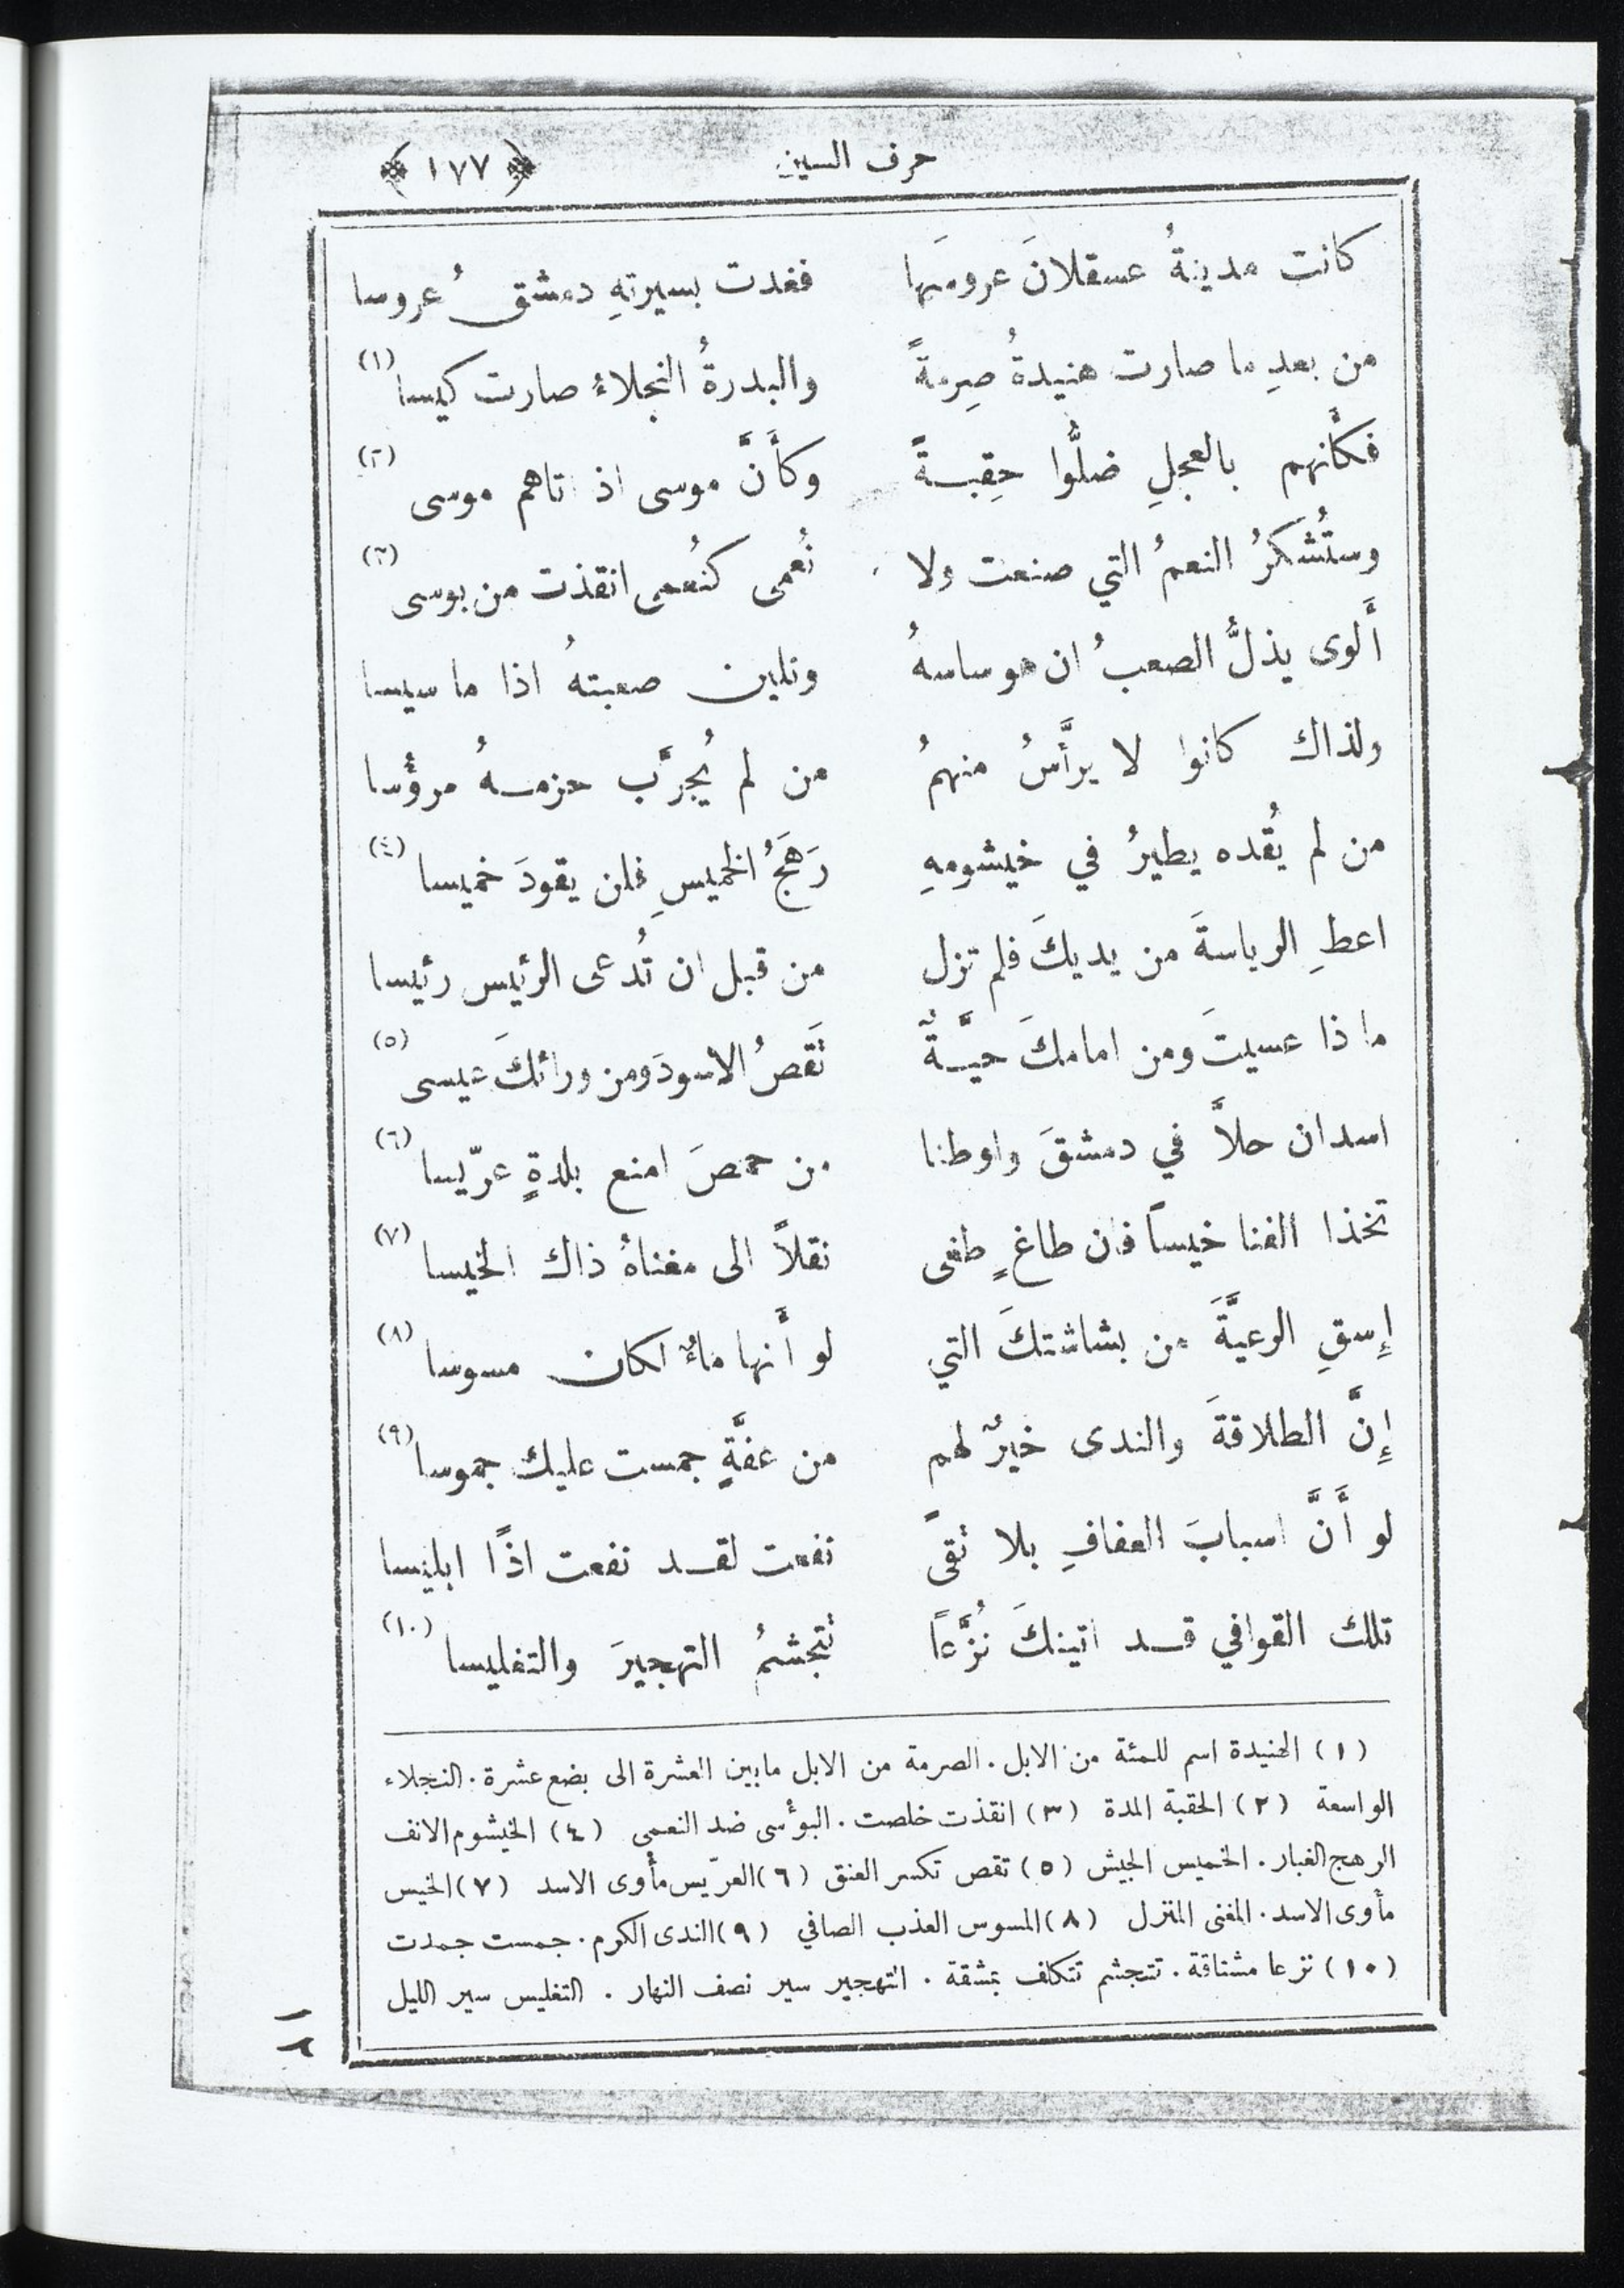 حرف السين ﴿ ١٧٧ ﴾
كانت مدينةُ عسقلانَ عروسَها فغدت بسيرتهِ دمشقُ عروسا
من بعدِ ما صارت هنيدةُ صِرمةً والبدرةُ النجلاءُ صارت كيسا (١)
فكأَنهم بالعجلِ ضلُّوا حِقبةً وكأَنَّ موسى اذ اتاهم موسى (٢)
وستُشكَرُ النعمُ التي صنعت ولا نُعمى كنُعمى انقذت من بوسى (٣)
أَلوى يذلُّ الصعبُ ان هو ساسهُ وتلين صعبتهُ اذا ما سيسا
ولذاك كانوا لا يرأَّسُ منهمُ من لم يُجرَّب حزمهُ مرؤُسا
من لم يُقده يطيرُ في خيشومهِ رَهَجُ الخميسِ فلن يقودَ خميسا (٤)
اعطِ الرياسةَ من يديكَ فلم تزل من قبل ان تُدعى الرئيس رئيسا
ما ذا عسيتَ ومن امامكَ حيَّةٌ تَقصُ الاسودَ ومن ورائكَ عيسى (٥)
اسدان حلاَّ في دمشقَ واوطنا من حمصَ امنع بلدةٍ عرّيسا (٦)
تخذا القنا خيساً فان طاغٍ طغى نقلاً الى مغناهُ ذاك الخيسا (٧)
إِسقِ الرعيَّةَ من بشاشتكَ التي لو أَنها ماءٌ لكان مسوسا (٨)
إِنَّ الطلاقةَ والندى خيرٌ لهم من عفَّةٍ جمست عليك جموسا (٩)
لو أَنَّ اسبابَ العفافِ بلا تقىً نفعت لقد نفعت اذًا ابليسا
تلك القوافي قد اتينكَ نُزَّعاً تتجشمُ التهجيرَ والتغليسا (١٠)
(١) الهنيدة اسم للمئة من الابل . الصرمة من الابل ما بين العشرة الى بضع عشرة . النجلاء
الواسعة (٢) الحقبة المدة (٣) انقذت خلصت . البؤسى ضد النعمى (٤) الخيشوم الانف
الرهج الغبار . الخميس الجيش (٥) تقص تكسر العنق (٦) العرّيس مأوى الاسد (٧) الخيس
مأوى الاسد . المغنى المنزل (٨) المسوس العذب الصافي (٩) الندى الكرم . جمست جمدت
(١٠) نزعا مشتاقة . تتجشم تتكلف بمشقة . التهجير سير نصف النهار . التغليس سير الليل